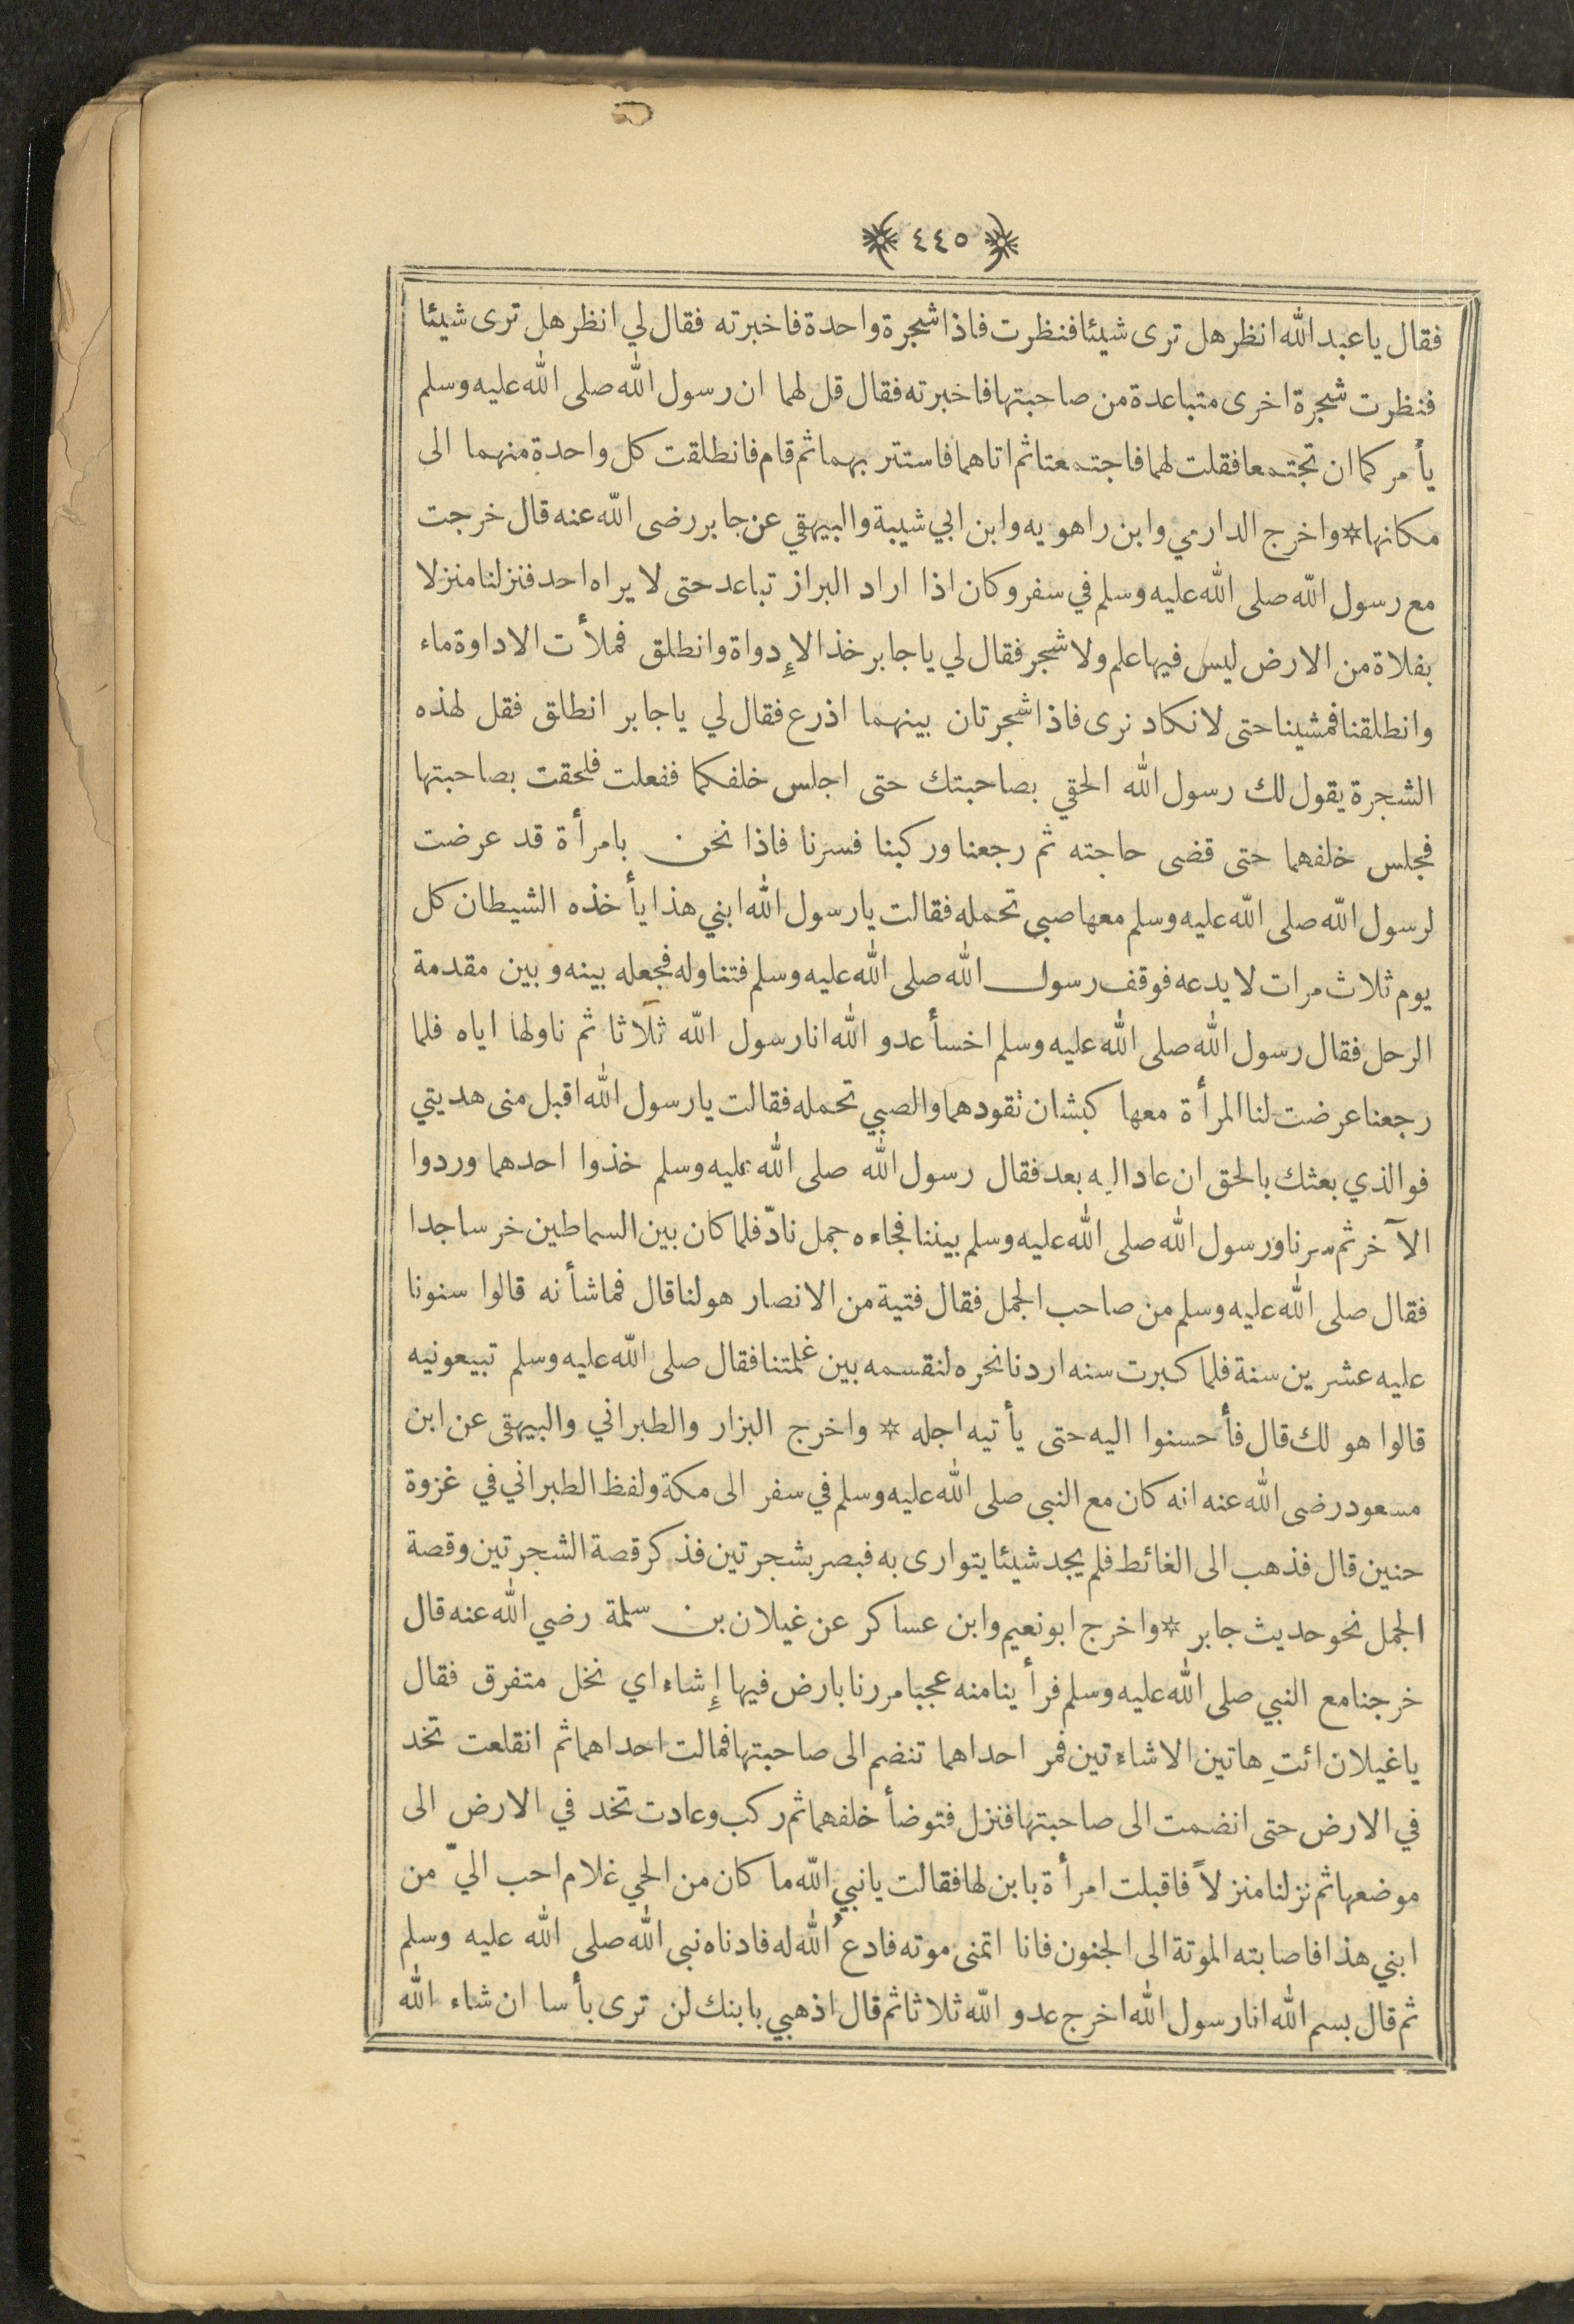 ﴿ ٤٤٥ ﴾
فقال يا عبد الله انظر هل ترى شيئا فنظرت فاذا شجرة واحدة فاخبرته فقال لي انظر هل ترى شيئا
فنظرت شجرة اخرى متباعدة من صاحبتها فاخبرته فقال قل لهما ان رسول الله صلى الله عليه وسلم
يأمركما ان تجتمعا فقلت لهما فاجتمعتا ثم اتاهما فاستتر بهما ثم قام فانطلقت كل واحدة منهما الى
مكانها * واخرج الدارمي وابن راهويه وابن ابي شيبة والبيهقي عن جابر رضى الله عنه قال خرجت
مع رسول الله صلى الله عليه وسلم في سفر وكان اذا اراد البراز تباعد حتى لا يراه احد فنزلنا منزلا
بفلاة من الارض ليس فيها علم ولا شجر فقال لي يا جابر خذ الإدواة وانطلق فملأت الاداوة ماء
وانطلقنا فمشينا حتى لا نكاد نرى فاذا شجرتان بينهما اذرع فقال لي يا جابر انطلق فقل لهذه
الشجرة يقول لك رسول الله الحقي بصاحبتك حتى اجلس خلفكما ففعلت فلحقت بصاحبتها
فجلس خلفهما حتى قضى حاجته ثم رجعنا وركبنا فسرنا فاذا نحن بامرأة قد عرضت
لرسول الله صلى الله عليه وسلم معها صبي تحمله فقالت يا رسول الله ابني هذا يأخذه الشيطان كل
يوم ثلاث مرات لا يدعه فوقف رسول الله صلى الله عليه وسلم فتناوله فجعله بينه وبين مقدمة
الرحل فقال رسول الله صلى الله عليه وسلم اخسأ عدو الله انا رسول الله ثلاثا ثم ناولها اياه فلما
رجعنا عرضت لنا المرأة معها كبشان تقودهما والصبي تحمله فقالت يا رسول الله اقبل منى هديتي
فو الذي بعثك بالحق ان عاد اليه بعد فقال رسول الله صلى الله عليه وسلم خذوا احدهما وردوا
الآخر ثم سرنا ورسول الله صلى الله عليه وسلم بيننا فجاءه جمل نادّ فلما كان بين السماطين خر ساجدا
فقال صلى الله عليه وسلم من صاحب الجمل فقال فتية من الانصار هو لنا قال فما شأنه قالوا سنونا
عليه عشرين سنة فلما كبرت سنه اردنا نحره لنقسمه بين غلمتنا فقال صلى الله عليه وسلم تبيعونيه
قالوا هو لك قال فأحسنوا اليه حتى يأتيه اجله * واخرج البزار والطبراني والبيهقى عن ابن
مسعود رضى الله عنه انه كان مع النبى صلى الله عليه وسلم في سفر الى مكة ولفظ الطبراني في غزوة
حنين قال فذهب الى الغائط فلم يجد شيئا يتوارى به فبصر بشجرتين فذكر قصة الشجرتين وقصة
الجمل نحو حديث جابر * واخرج ابو نعيم وابن عساكر عن غيلان بن سلمة رضي الله عنه قال
خرجنا مع النبي صلى الله عليه وسلم فرأينا منه عجبا مررنا بارض فيها إشاء اي نخل متفرق فقال
يا غيلان ائتِ هاتين الاشاءتين فمر احداهما تنضم الى صاحبتها فمالت احداهما ثم انقلعت تخد
في الارض حتى انضمت الى صاحبتها فنزل فتوضأ خلفهما ثم ركب وعادت تخد في الارض الى
موضعها ثم نزلنا منزلاً فاقبلت امرأة بابن لها فقالت يا نبي الله ما كان من الحي غلام احب اليّ من
ابني هذا فاصابته الموتة الى الجنون فانا اتمنى موته فادعُ الله له فادناه نبى الله صلى الله عليه وسلم
ثم قال بسم الله انا رسول الله اخرج عدو الله ثلاثا ثم قال اذهبي بابنك لن ترى بأسا ان شاء الله